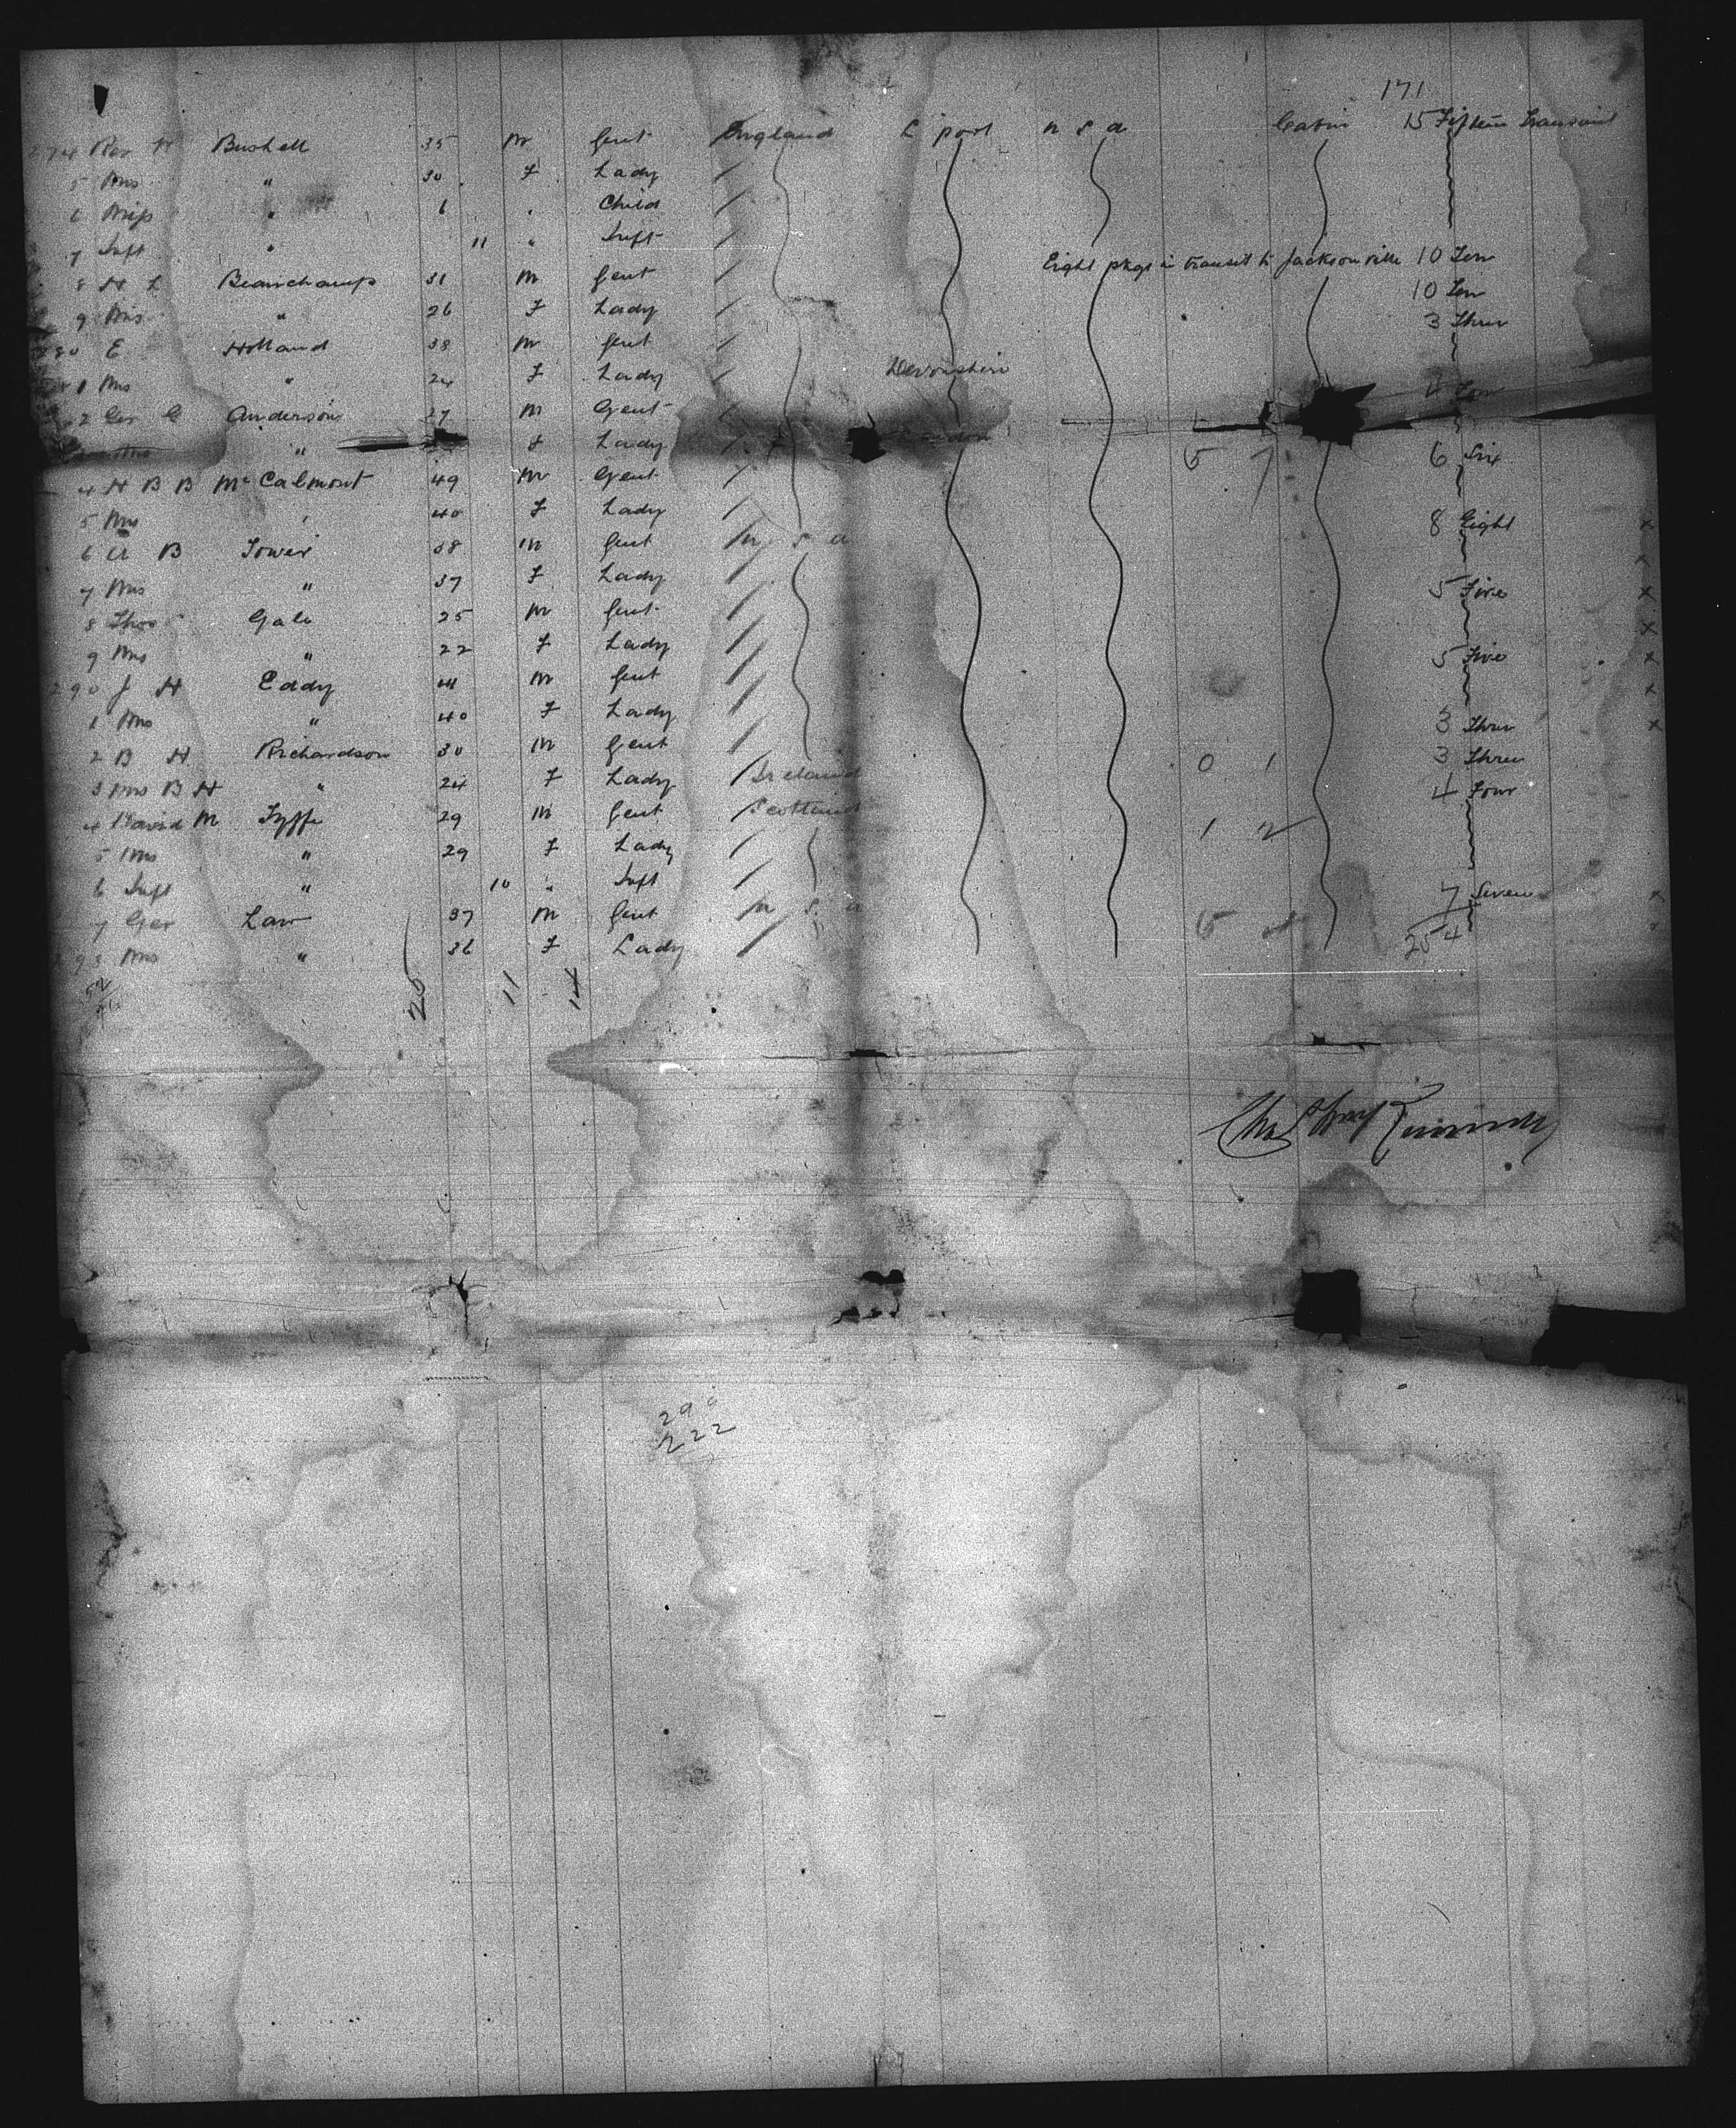 171
274 Rev H Bushell 35 M Gent England L'pool U S A Cabin 15 Fifteen Transient
5 Mrs " 30 F Lady
6 Miss " 6 " Child
7 Inft " 11 " Inft
Eight pkgs in transit to Jacksonville 10 Ten
8 H L Beauchamp 31 M Gent 10 Ten
9 Mrs " 26 F Lady 3 Three
280 E Holland 38 M Gent
1 Mrs " 24 F Lady Devonshire
2 Geo G Anderson 27 M Gent 4
Mrs " F Lady London 5 7 6 Six
4 H B B McCalmont 49 M Gent
5 Mrs " 40 F Lady 8 Eight x
6 A B Tower 38 M Gent U S A x
7 Mrs " 37 F Lady 5 Five x
8 Thos Gale 25 M Gent x
9 Mrs " 22 F Lady 5 Five x
290 J H Eddy 41 M Gent x
1 Mrs " 40 F Lady 3 Three x
2 B H Richardson 30 M Gent 0 1 3 Three
3 Mrs B H " 24 F Lady Ireland 4 Four
4 David M Fyffe 29 M Gent Scotland 1 2
5 Mrs " 29 F Lady
6 Inft " 10 " Inft 7 Seven x
7 Geo Law 37 M Gent U S A 5
298 Mrs " 36 F Lady 254
25 11 14
298
222